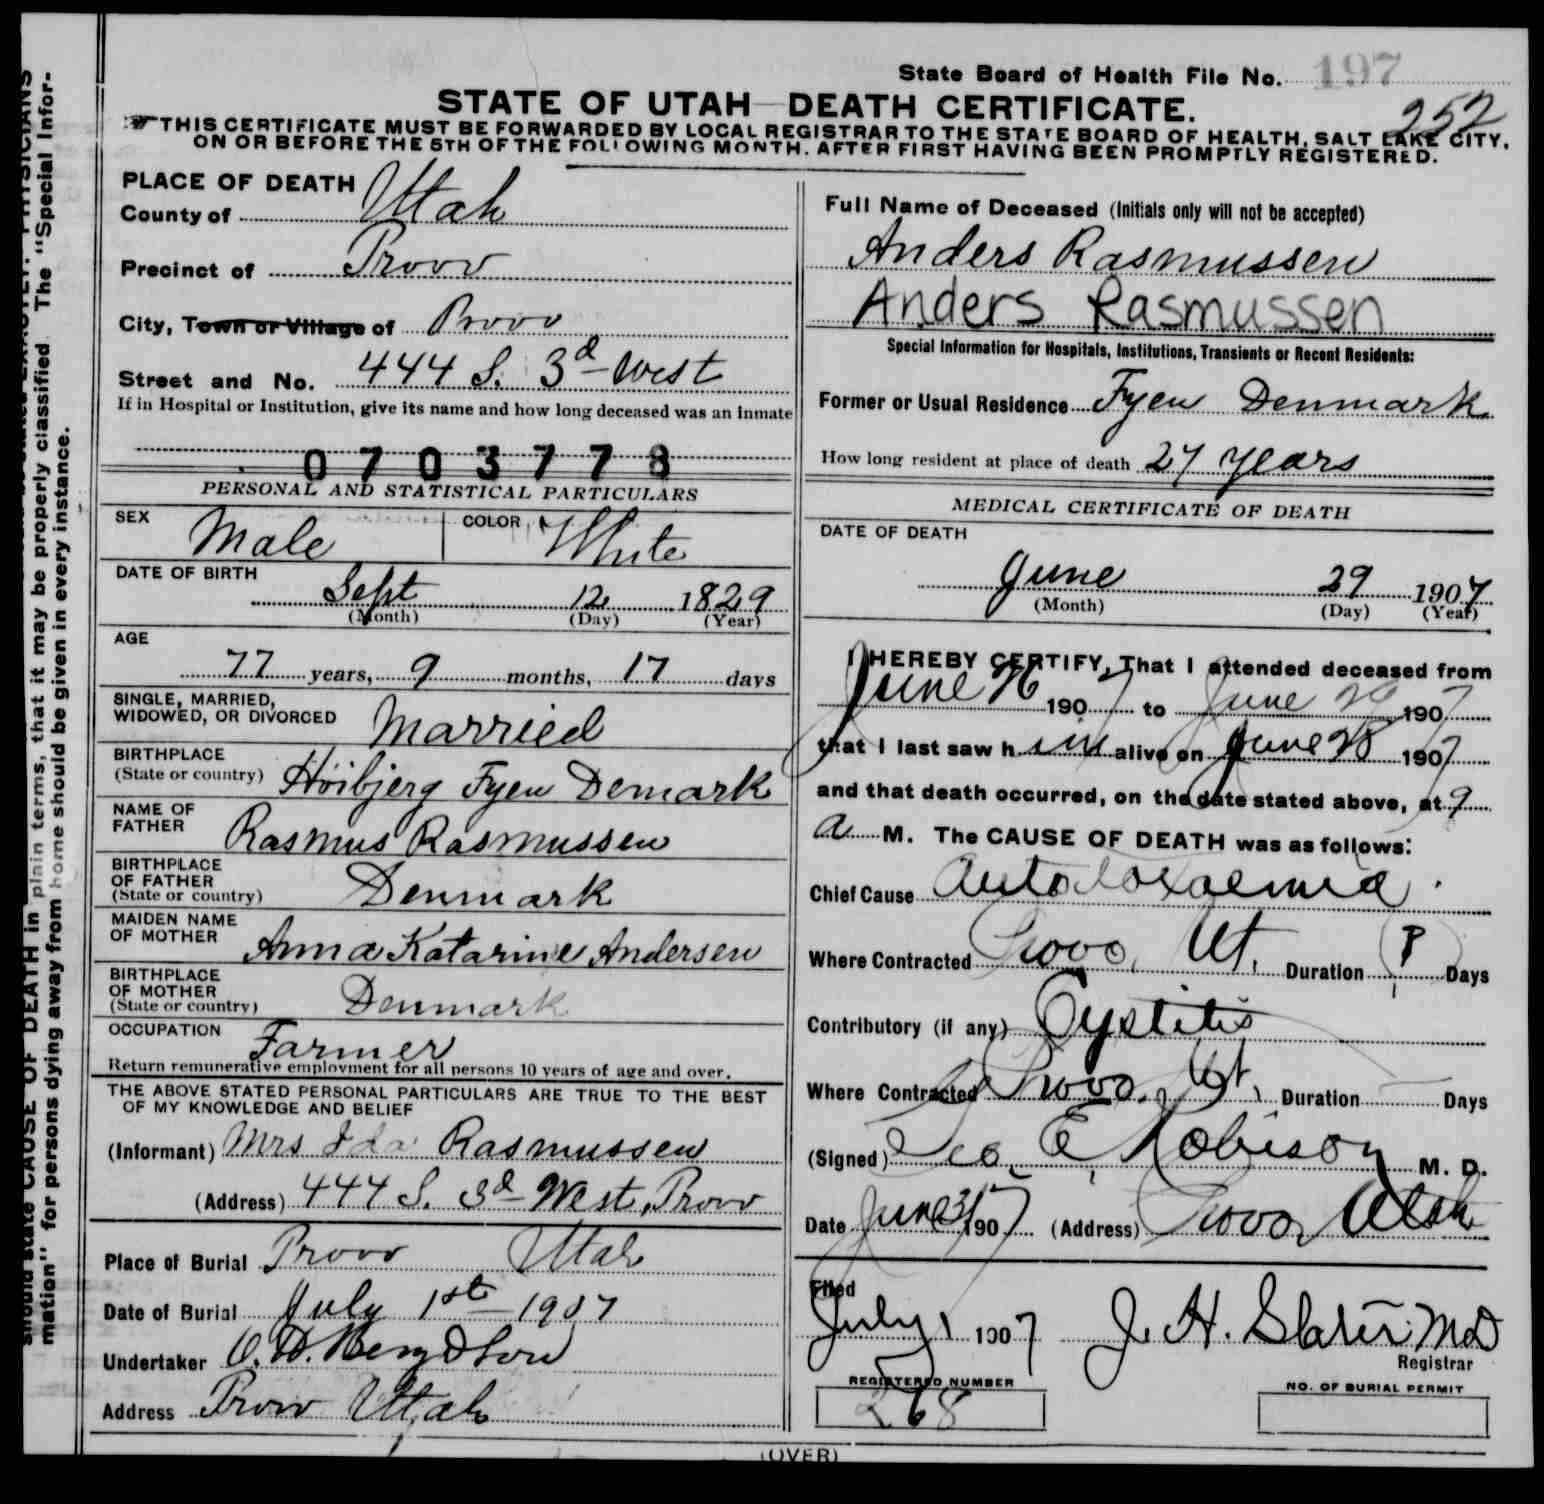 State Board of Health File No. 197
STATE OF UTAH—DEATH CERTIFICATE.
252
THIS CERTIFICATE MUST BE FORWARDED BY LOCAL REGISTRAR TO THE STATE BOARD OF HEALTH, SALT LAKE CITY,
ON OR BEFORE THE 5TH OF THE FOLLOWING MONTH, AFTER FIRST HAVING BEEN PROMPTLY REGISTERED.
PLACE OF DEATH
County of Utah
Precinct of Provo
City, Town or Village of Provo
Street and No. 444 S. 3d West
If in Hospital or Institution, give its name and how long deceased was an inmate
0703778
PERSONAL AND STATISTICAL PARTICULARS
SEX Male COLOR White
DATE OF BIRTH
Sept 12 1829
(Month) (Day) (Year)
AGE
77 years, 9 months, 17 days
SINGLE, MARRIED,
WIDOWED, OR DIVORCED Married
BIRTHPLACE
(State or country) Höibjerg Fyen Demark
NAME OF
FATHER Rasmus Rasmussen
BIRTHPLACE
OF FATHER
(State or country) Denmark
MAIDEN NAME
OF MOTHER Anna Katarine Andersen
BIRTHPLACE
OF MOTHER
(State or country) Denmark
OCCUPATION Farmer
Return remunerative employment for all persons 10 years of age and over.
THE ABOVE STATED PERSONAL PARTICULARS ARE TRUE TO THE BEST
OF MY KNOWLEDGE AND BELIEF
(Informant) Mrs Ida Rasmussen
(Address) 444 S. 3d West, Provo
Place of Burial Provo Utah
Date of Burial July 1st 1907
Undertaker O. H. Berg & Son
Address Provo Utah
Full Name of Deceased (Initials only will not be accepted)
Anders Rasmussen
Anders Rasmussen
Special Information for Hospitals, Institutions, Transients or Recent Residents:
Former or Usual Residence Fyen Denmark
How long resident at place of death 27 years
MEDICAL CERTIFICATE OF DEATH
DATE OF DEATH
June 29 1907
(Month) (Day) (Year)
I HEREBY CERTIFY, That I attended deceased from
June 26 1907 to June 29 1907
that I last saw him alive on June 28 1907
and that death occurred, on the date stated above, at 9
a M. The CAUSE OF DEATH was as follows:
Chief Cause Autotoxaemia
Where Contracted Provo, Ut. Duration ? Days
Contributory (if any) Cystitis
Where Contracted Provo, Ut. Duration Days
(Signed) Geo. E. Robison M. D.
Date June 1907 (Address) Provo Utah
Filed
July 1 1907 J. H. Slater MD
Registrar
REGISTERED NUMBER
268
NO. OF BURIAL PERMIT
(OVER)
should state CAUSE OF DEATH in plain terms, that it may be properly classified. The "Special Infor-
mation" for persons dying away from home should be given in every instance.